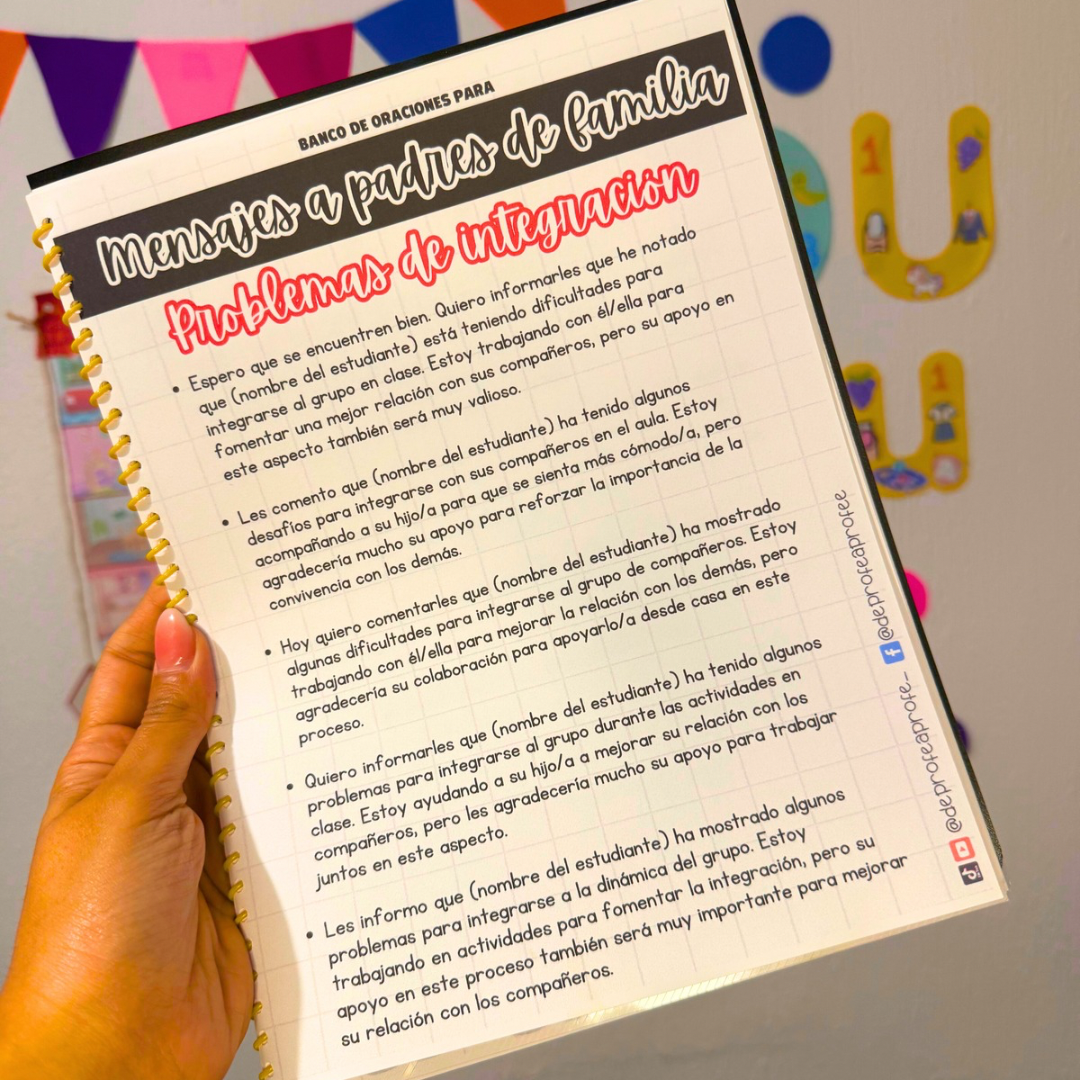 BANCO DE ORACIONES PARA
Mensajes a padres de familia
Problemas de integración
• Espero que se encuentren bien. Quiero informarles que he notado
que (nombre del estudiante) está teniendo dificultades para
integrarse al grupo en clase. Estoy trabajando con él/ella para
fomentar una mejor relación con sus compañeros, pero su apoyo en
este aspecto también será muy valioso.
• Les comento que (nombre del estudiante) ha tenido algunos
desafíos para integrarse con sus compañeros en el aula. Estoy
acompañando a su hijo/a para que se sienta más cómodo/a, pero
agradecería mucho su apoyo para reforzar la importancia de la
convivencia con los demás.
• Hoy quiero comentarles que (nombre del estudiante) ha mostrado
algunas dificultades para integrarse al grupo de compañeros. Estoy
trabajando con él/ella para mejorar la relación con los demás, pero
agradecería su colaboración para apoyarlo/a desde casa en este
proceso.
• Quiero informarles que (nombre del estudiante) ha tenido algunos
problemas para integrarse al grupo durante las actividades en
clase. Estoy ayudando a su hijo/a a mejorar su relación con los
compañeros, pero les agradecería mucho su apoyo para trabajar
juntos en este aspecto.
• Les informo que (nombre del estudiante) ha mostrado algunos
problemas para integrarse a la dinámica del grupo. Estoy
trabajando en actividades para fomentar la integración, pero su
apoyo en este proceso también será muy importante para mejorar
su relación con los compañeros.
@deprofeaprofe_
@deprofeaprofee
U
1
u
1